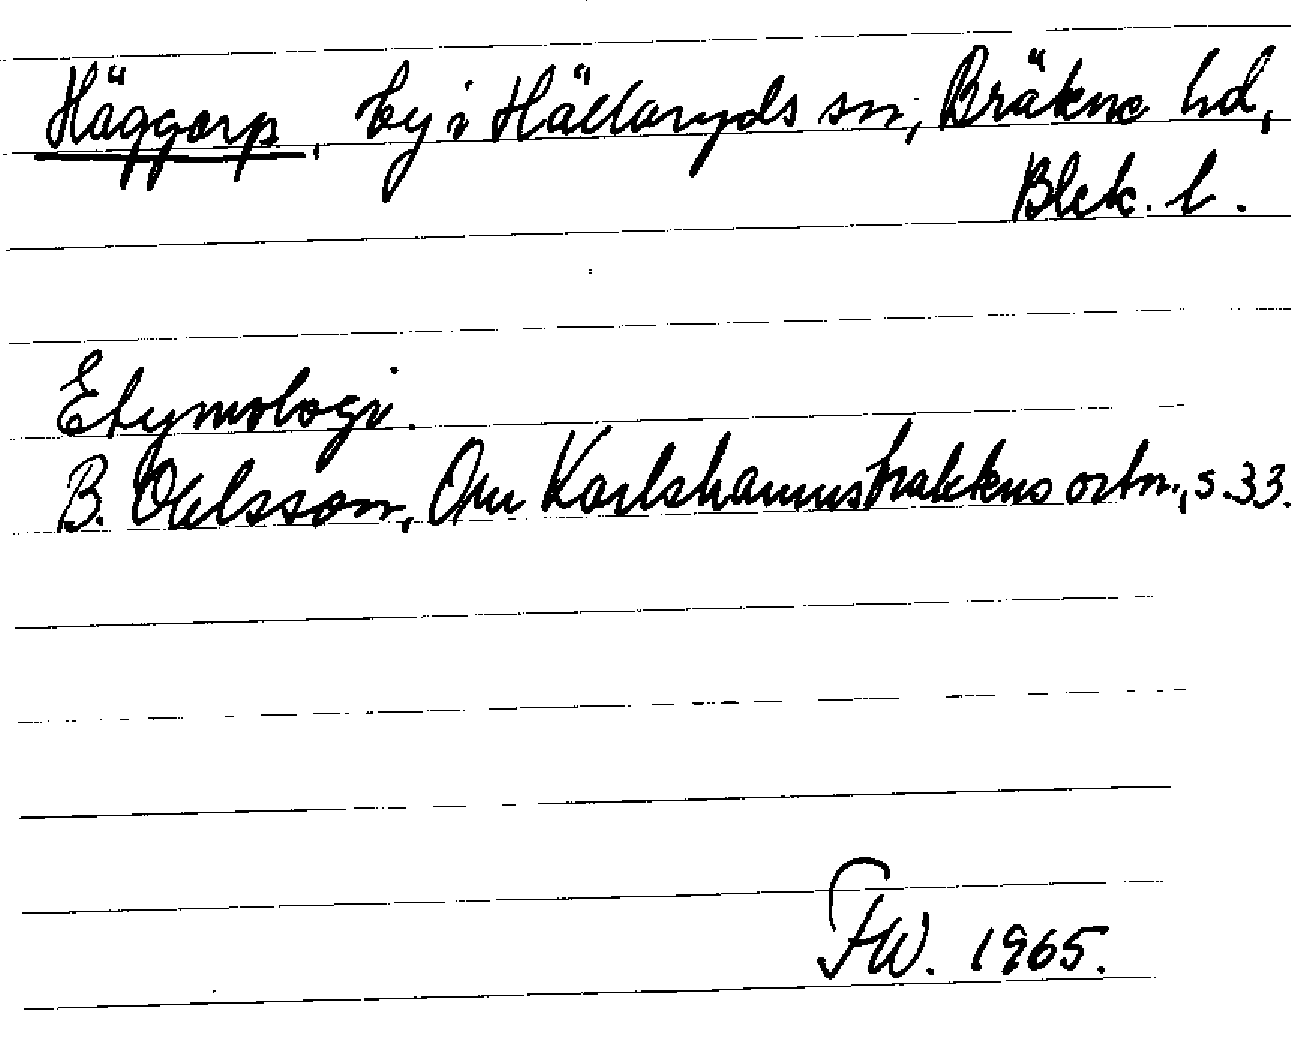 Häggarp, by i Hällaryds sn, Bräkne hd,
Blek. l.
Etymologi.
B. Ohlsson, Om Karlshamnstraktens ortn., s. 33.
FW. 1965.